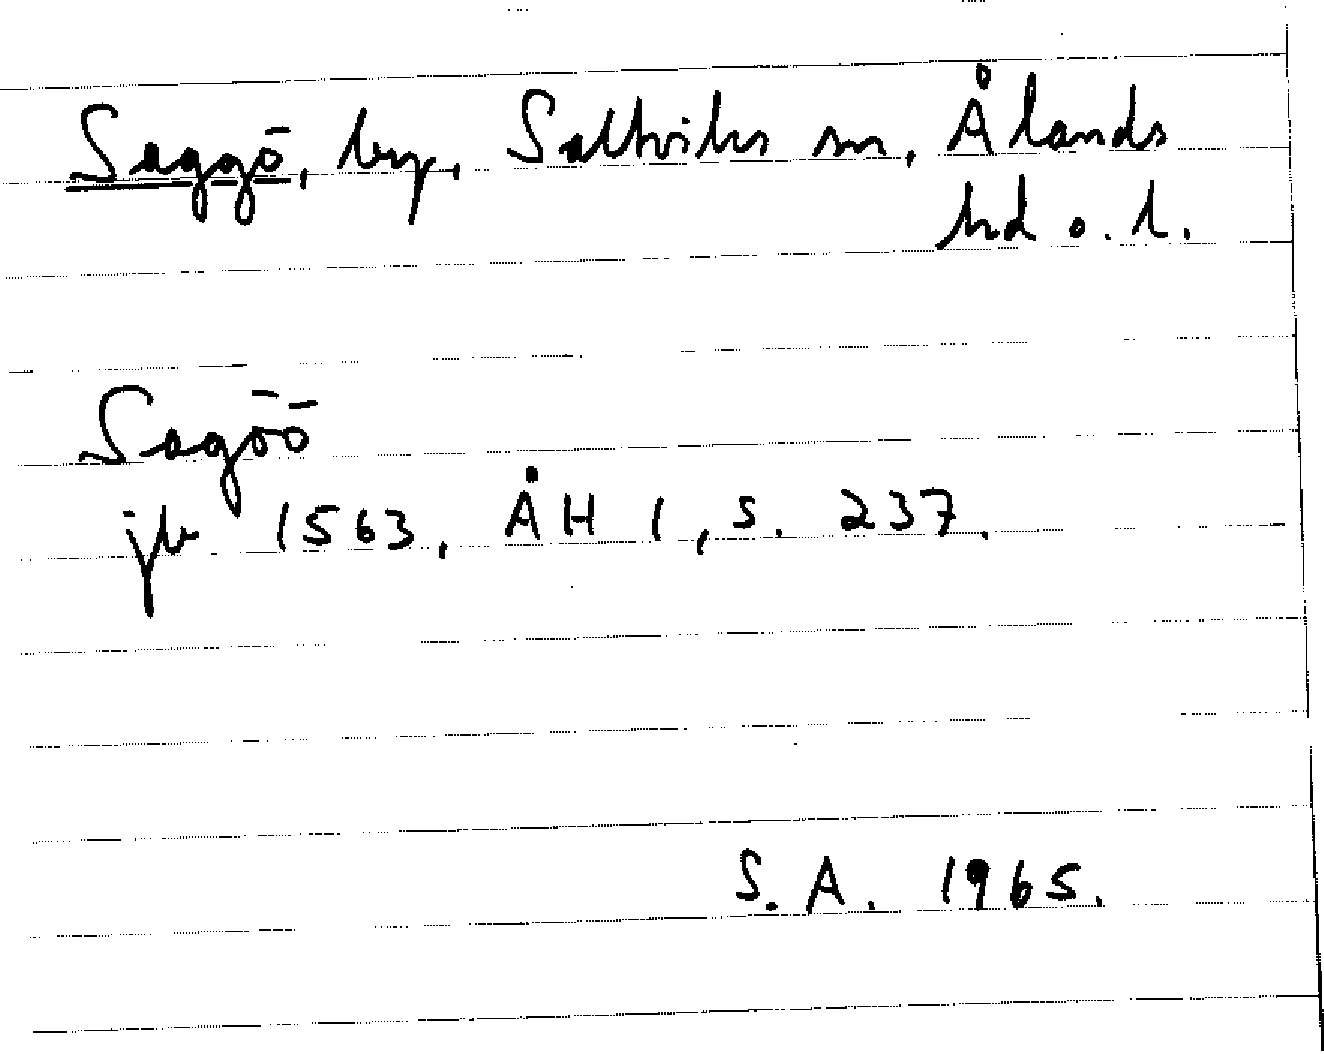 Saggö, by, Saltviks sn, Ålands
hd o. l.
Sagöö
jb 1563, ÅH 1, s. 237.
S.A. 1965.